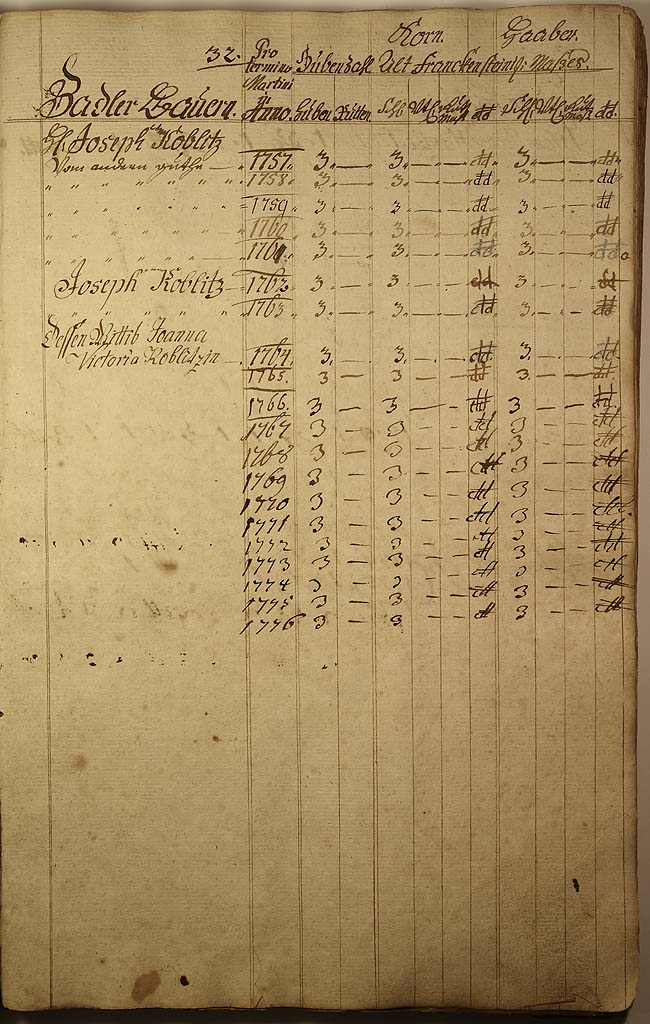 Korn. Haaber.
32. Pro termino Martini Hubenzahl Alt Franckensteinl: Maßes.
Sadler Bauern. Anno. Huben Rutten. Schl Vtl Mastl dd Schl Vtl Mastl dd.
H. Joseph Koblitz
Vom andern guthe — 1757. 3. — 3. — — dd 3. — — dd
" " " " " — 1758. 3. — 3. — — dd 3. — — dd
" " " " " 1759 3. — 3 — — dd 3. — — dd
" " " " " 1760 3. — 3. — — dd 3. — — dd
" " " " " 1761. 3. — 3. — — dd 3. — — dd
Joseph Koblitz — 1762. 3. — 3. — — dd 3. — — dd
" " " " " 1763 3. — 3. — — dd 3. — — dd
Dessen Wittib Joanna
Victoria Koblitzin — 1764. 3. — 3. — — dd 3. — — dd
1765. 3 — 3 — — dd 3. — — dd.
1766. 3 — 3 — — dd 3 — — dd.
1767 3 — 3 — — dd 3 — — dd
1768 3 — 3 — — dd 3 — — dd
1769 3 — 3 — — dd 3 — — dd
1770 3 — 3 — — dd 3 — — dd
1771 3 — 3 — — dd 3 — — dd.
1772 3 — 3 — — dd 3 — — dd
1773 3 — 3 — — dd 3 — — dd
1774 3 — 3 — — dd 3 — — dd
1775 3 — 3 — — dd 3 — — dd
1776 3 — 3 — — dd 3 — — dd